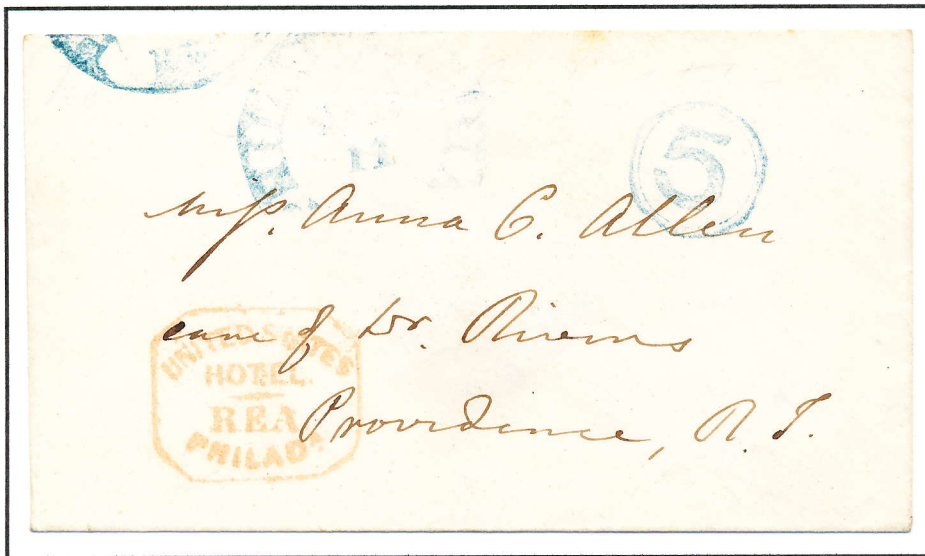 5
Miss. Anna C. Allen
care of Dr. Rivers
Providence, R. I.
UNITED STATES
HOTEL.
REA
PHILADA